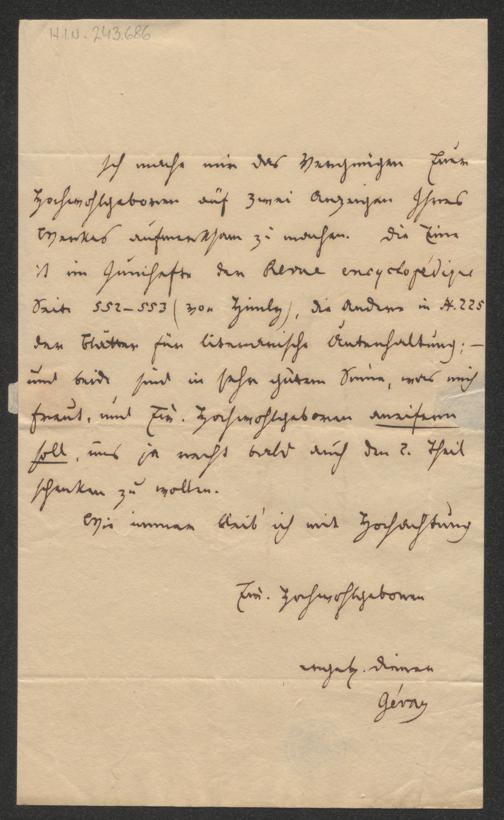 H.I.N. 243.686
Ich mache mir das Vergnügen Euer
Hochwohlgeboren auf zwei Anzeigen Ihres
Werkes aufmerksam zu machen. Die Eine
ist im Junihefte der Revue encyclopédique
Seite 552–553 (von Himly), die Andere in N. 225
der Blätter für literarische Unterhaltung; –
und beide sind in sehr gutem Sinne, was mich
freut, und Eu. Hochwohlgeboren aneifern
soll, uns ja recht bald auch den 2. Theil
schenken zu wollen.
Wie immer bleib' ich mit Hochachtung
Eu. Hochwohlgeboren
diener
Gévay